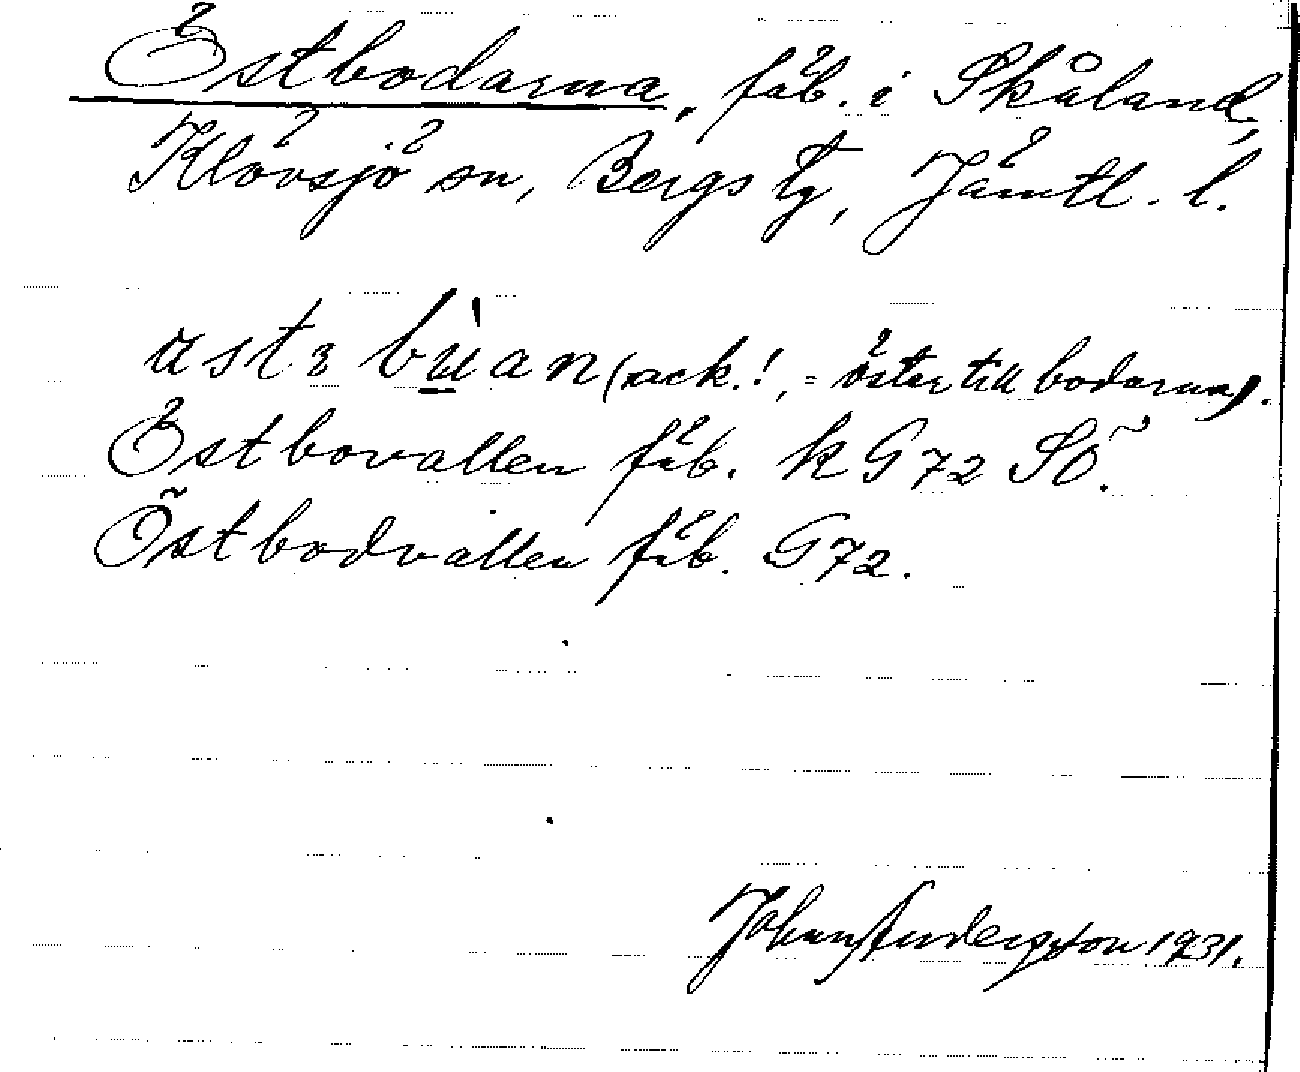 Östbodarna, fäb. i Skåland,
Klövsjö sn, Bergs tg, Jämtl. l.
bùan (ack.!, = öster till bodarna).
Östbovallen fäb. k G72 SÖ.
Östbodvallen fäb. G72.
Johan Andersson 1931.